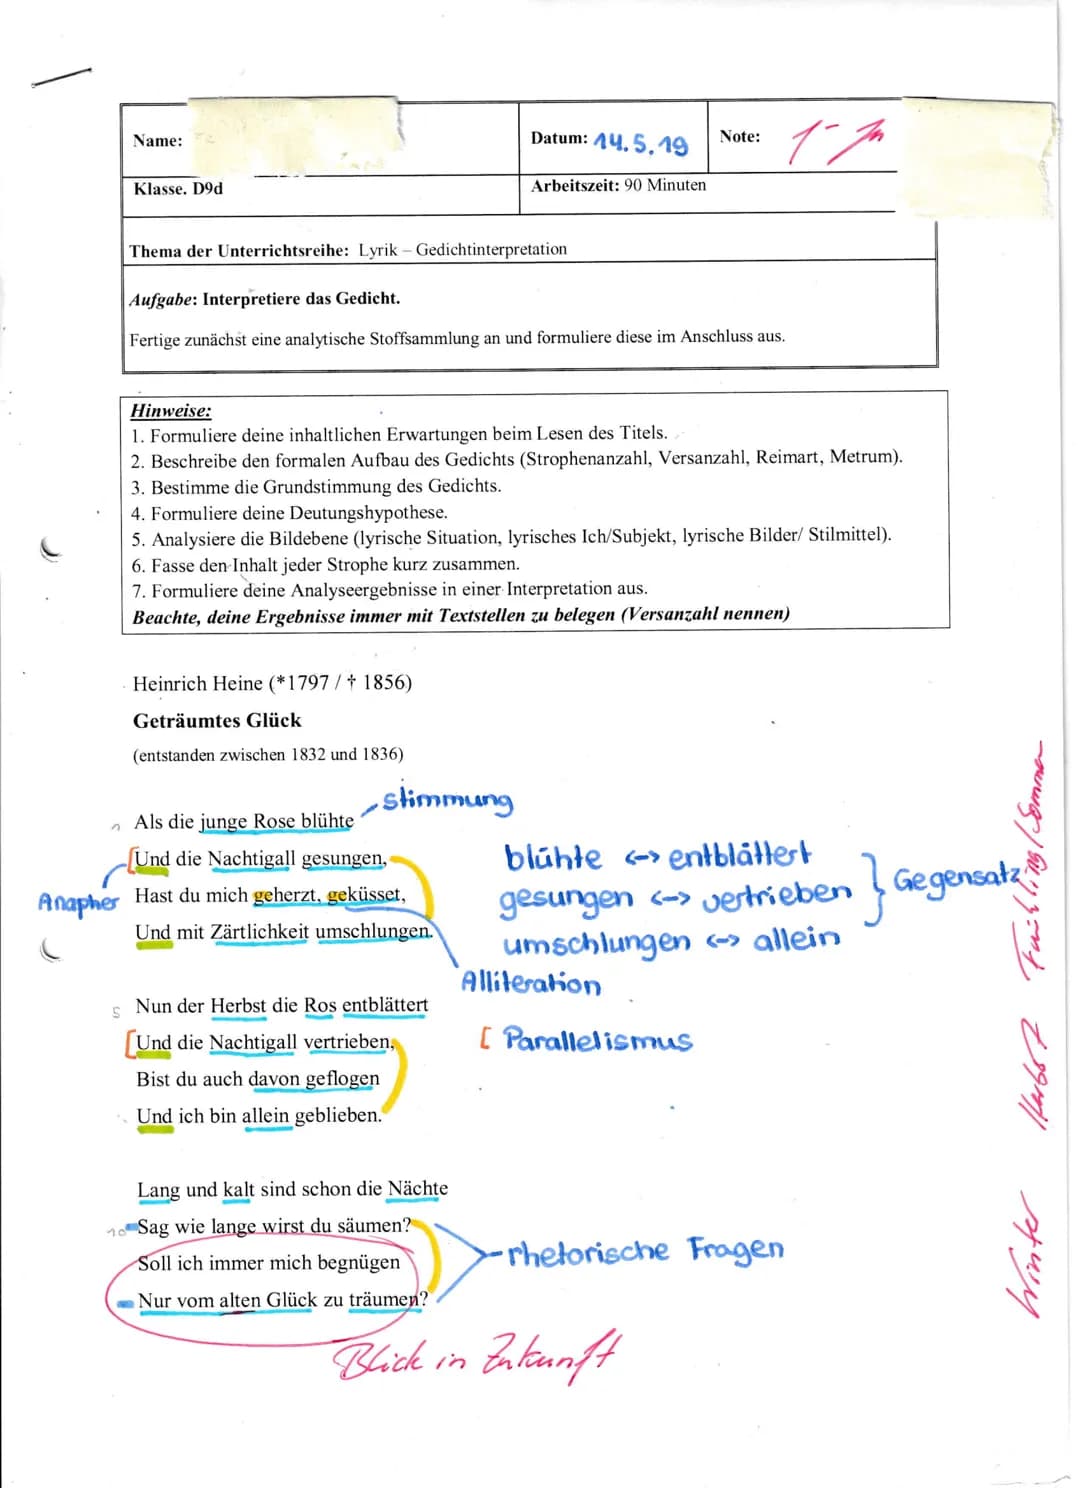 Name:
Datum: 14.5.19
Note: 1-
Klasse. D9d
Arbeitszeit: 90 Minuten
Thema der Unterrichtsreihe: Lyrik – Gedichtinterpretation
Aufgabe: Interpretiere das Gedicht.
Fertige zunächst eine analytische Stoffsammlung an und formuliere diese im Anschluss aus.
Hinweise:
1. Formuliere deine inhaltlichen Erwartungen beim Lesen des Titels.
2. Beschreibe den formalen Aufbau des Gedichts (Strophenanzahl, Versanzahl, Reimart, Metrum).
3. Bestimme die Grundstimmung des Gedichts.
4. Formuliere deine Deutungshypothese.
5. Analysiere die Bildebene (lyrische Situation, lyrisches Ich/Subjekt, lyrische Bilder/ Stilmittel).
6. Fasse den Inhalt jeder Strophe kurz zusammen.
7. Formuliere deine Analyseergebnisse in einer Interpretation aus.
Beachte, deine Ergebnisse immer mit Textstellen zu belegen (Versanzahl nennen)
Heinrich Heine (*1797 / † 1856)
Geträumtes Glück
(entstanden zwischen 1832 und 1836)
Stimmung
1 Als die junge Rose blühte
Und die Nachtigall gesungen,
Anapher
Hast du mich geherzt, geküsset,
Und mit Zärtlichkeit umschlungen.
blühte <-> entblättert
gesungen <-> vertrieben
umschlungen <-> allein
Gegensatz
Alliteration
5 Nun der Herbst die Ros entblättert
Und die Nachtigall vertrieben,
[ Parallelismus
Bist du auch davon geflogen
Und ich bin allein geblieben.
Lang und kalt sind schon die Nächte
10 Sag wie lange wirst du säumen?
Soll ich immer mich begnügen
Nur vom alten Glück zu träumen?
rhetorische Fragen
Blick in Zukunft
Frühling/Sommer
Herbst
Winter